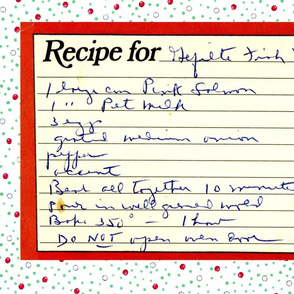 Recipe for Gefilte Fish
1 large can Pink Salmon
1 " Pet Milk
3 eggs
grated medium onion
pepper
accent
Beat all together 10 minute
Pour in well greased mold
Bake 350° - 1 hour
DO NOT open oven door